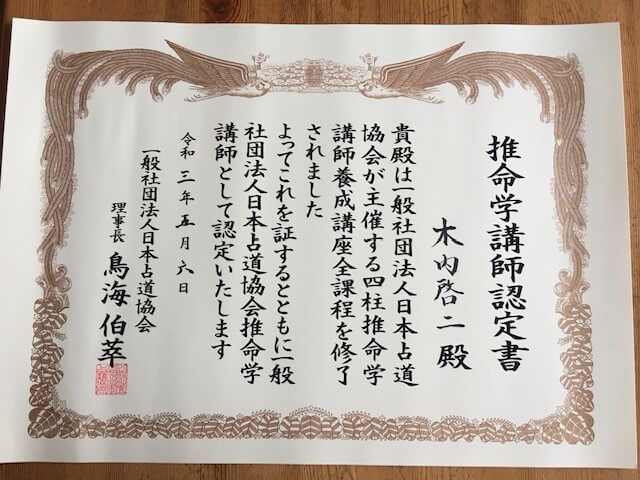 推命学講師認定書
木内啓二 殿
貴殿は一般社団法人日本占道
協会が主催する四柱推命学
講師養成講座全課程を修了
されました
よってこれを証するとともに一般
社団法人日本占道協会推命学
講師として認定いたします
令和三年五月六日
一般社団法人日本占道協会
理事長 鳥海伯萃